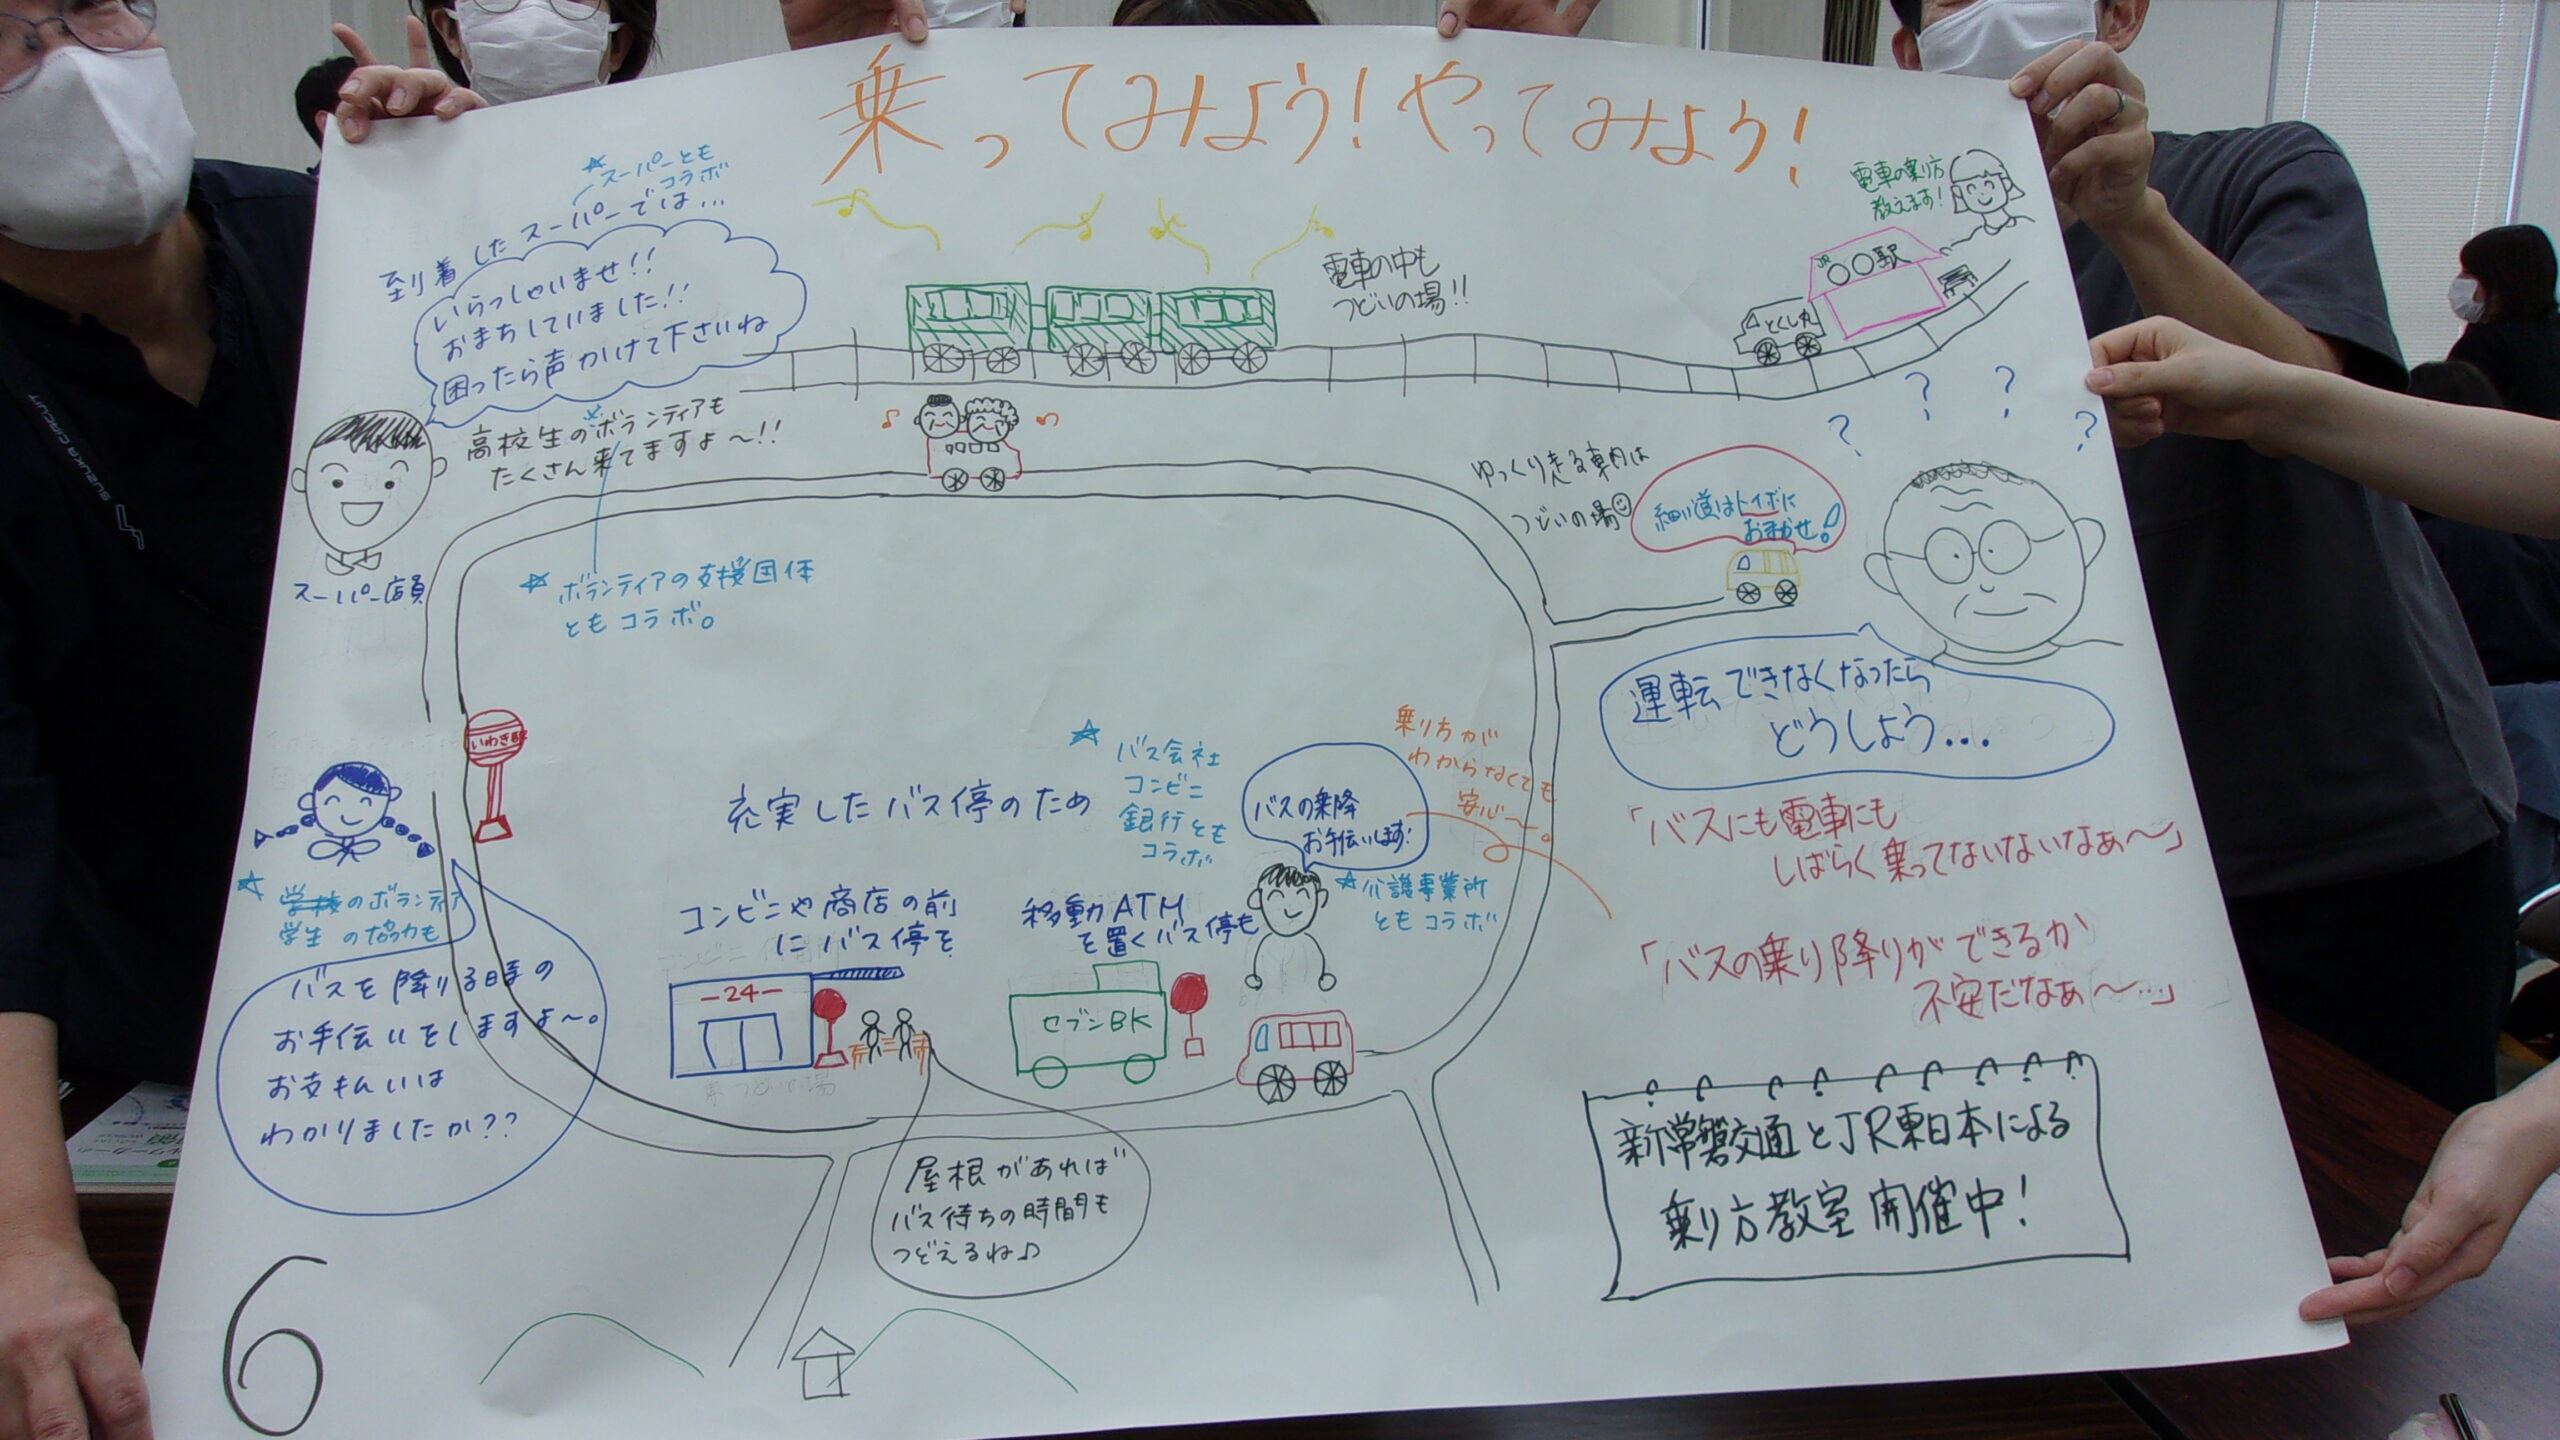 乗ってみよう！やってみよう！
☆スーパーとも
コラボ
到着したスーパーでは…
いらっしゃいませ!!
おまちしていました!!
困ったら声かけて下さいね
高校生のボランティアも
たくさん来てますよ〜!!
スーパー店員
☆ボランティアの支援団体
ともコラボ。
電車の中も
つどいの場!!
電車の乗り方
教えます！
JR
○○駅
とくし丸
ゆっくり走る車内は
つどいの場
細い道はトイボに
おまかせ！
? ? ? ?
運転できなくなったら
どうしよう…
「バスにも電車にも
しばらく乗ってないないなぁ〜」
「バスの乗り降りができるか
不安だなぁ〜…」
新常磐交通とJR東日本による
乗り方教室開催中！
いわき駅
☆学校のボランティア
学生の協力も
バスを降りる時の
お手伝いをしますよ〜。
お支払いは
わかりましたか??
充実したバス停のため
☆バス会社
コンビニ
銀行とも
コラボ
コンビニや商店の前
にバス停を
-24-
移動ATM
を置くバス停も
セブンBK
バスの乗降
お手伝いします！
乗り方が
わからなくても
安心〜。
☆介護事業所
ともコラボ
屋根があれば
バス待ちの時間も
つどえるね♪
6
SUZUKA CIRCUIT